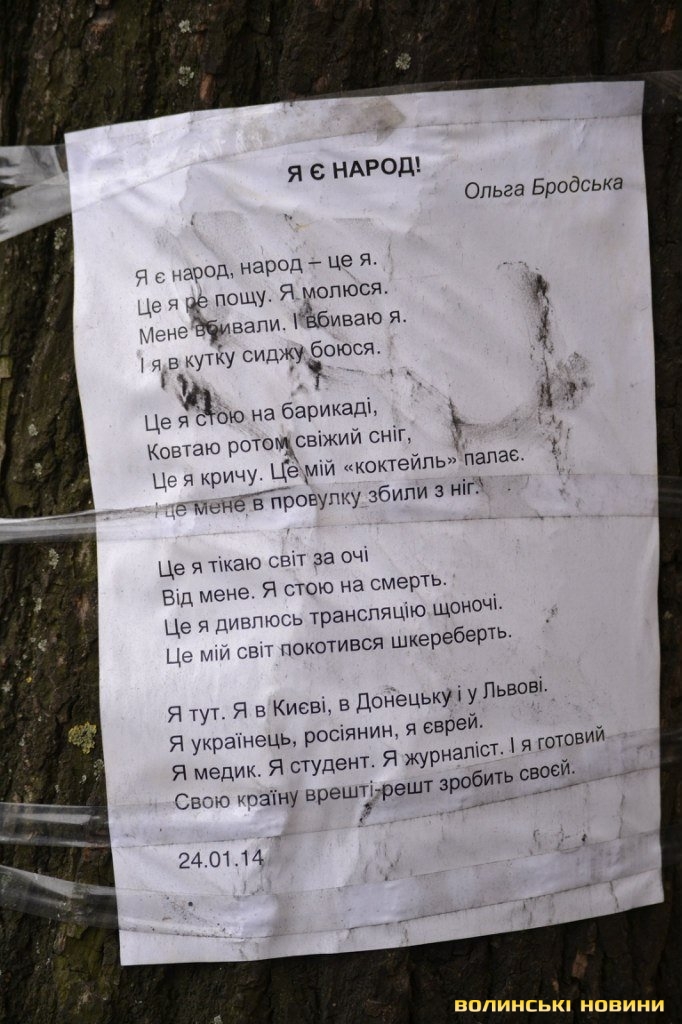 Я Є НАРОД!
Ольга Бродська
Я є народ, народ – це я.
Це я ре пощу. Я молюся.
Мене вбивали. І вбиваю я.
І я в кутку сиджу боюся.
Це я стою на барикаді,
Ковтаю ротом свіжий сніг,
Це я кричу. Це мій «коктейль» палає.
І це мене в провулку збили з ніг.
Це я тікаю світ за очі
Від мене. Я стою на смерть.
Це я дивлюсь трансляцію щоночі.
Це мій світ покотився шкереберть.
Я тут. Я в Києві, в Донецьку і у Львові.
Я українець, росіянин, я єврей.
Я медик. Я студент. Я журналіст. І я готовий
Свою країну врешті-решт зробить своєй.
24.01.14
ВОЛИНСЬКІ НОВИНИ